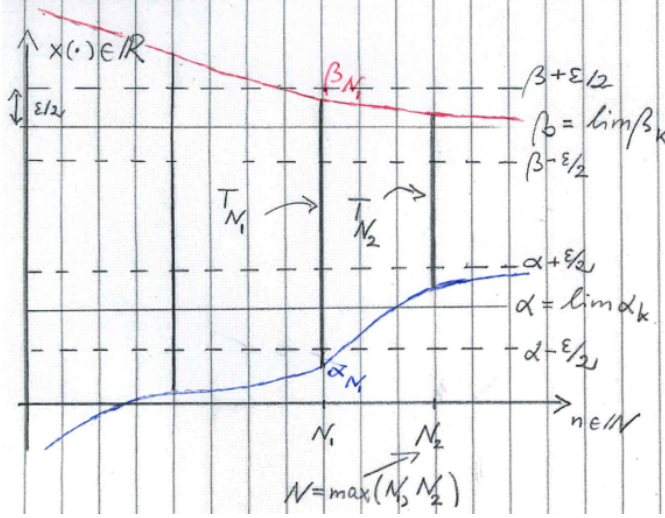 x(·)∈ℝ
β+ε/2
β_{N₁}
ε/2
β = lim β_k
β-ε/2
T_{N₁}
T_{N₂}
α+ε/2
α = lim α_k
α-ε/2
α_{N₁}
N₁
N₂
n∈ℕ
N=max(N₁, N₂)